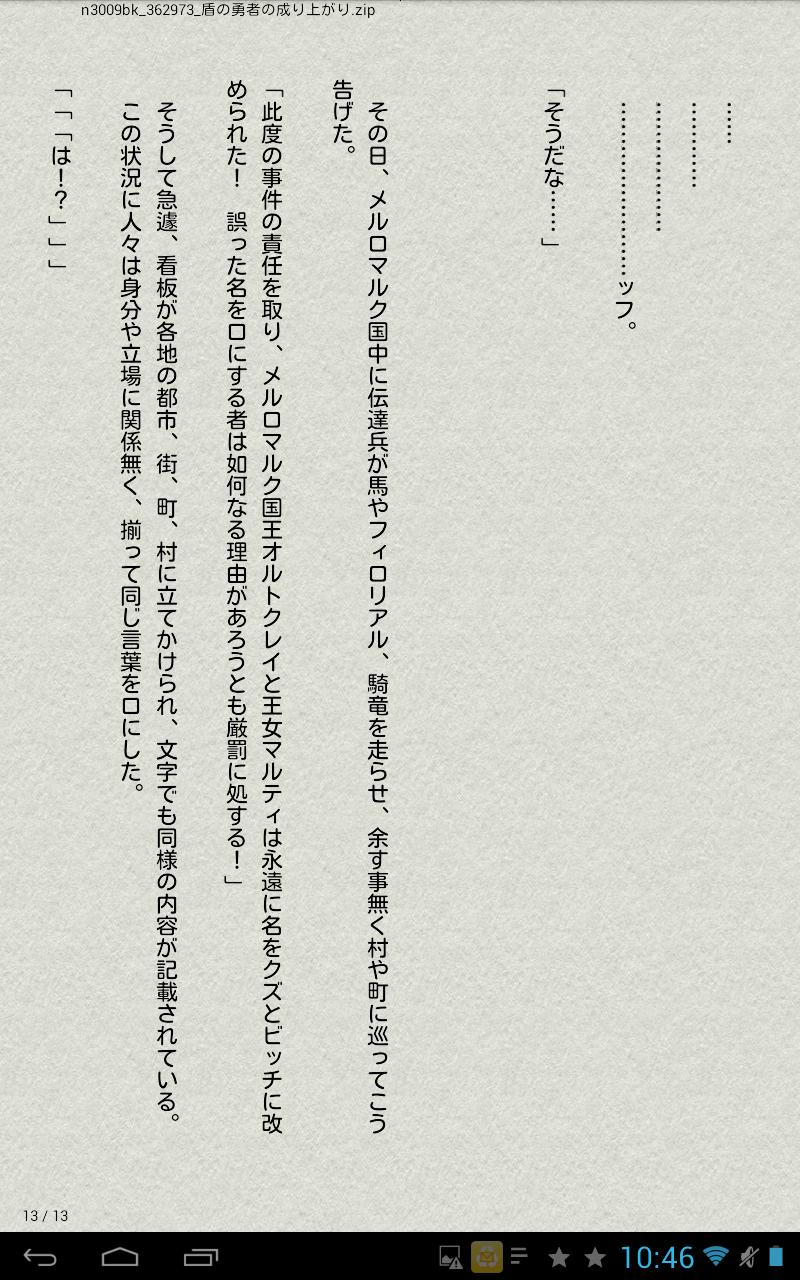 n3009bk_362973_盾の勇者の成り上がり.zip
……
…………
………………
……………………ッフ。
「そうだな……」
その日、メルロマルク国中に伝達兵が馬やフィロリアル、騎竜を走らせ、余す事無く村や町に巡ってこう
告げた。
「此度の事件の責任を取り、メルロマルク国王オルトクレイと王女マルティは永遠に名をクズとビッチに改
められた！　誤った名を口にする者は如何なる理由があろうとも厳罰に処する！」
そうして急遽、看板が各地の都市、街、町、村に立てかけられ、文字でも同様の内容が記載されている。
この状況に人々は身分や立場に関係無く、揃って同じ言葉を口にした。
「「「は！？」」」
13 / 13
10:46